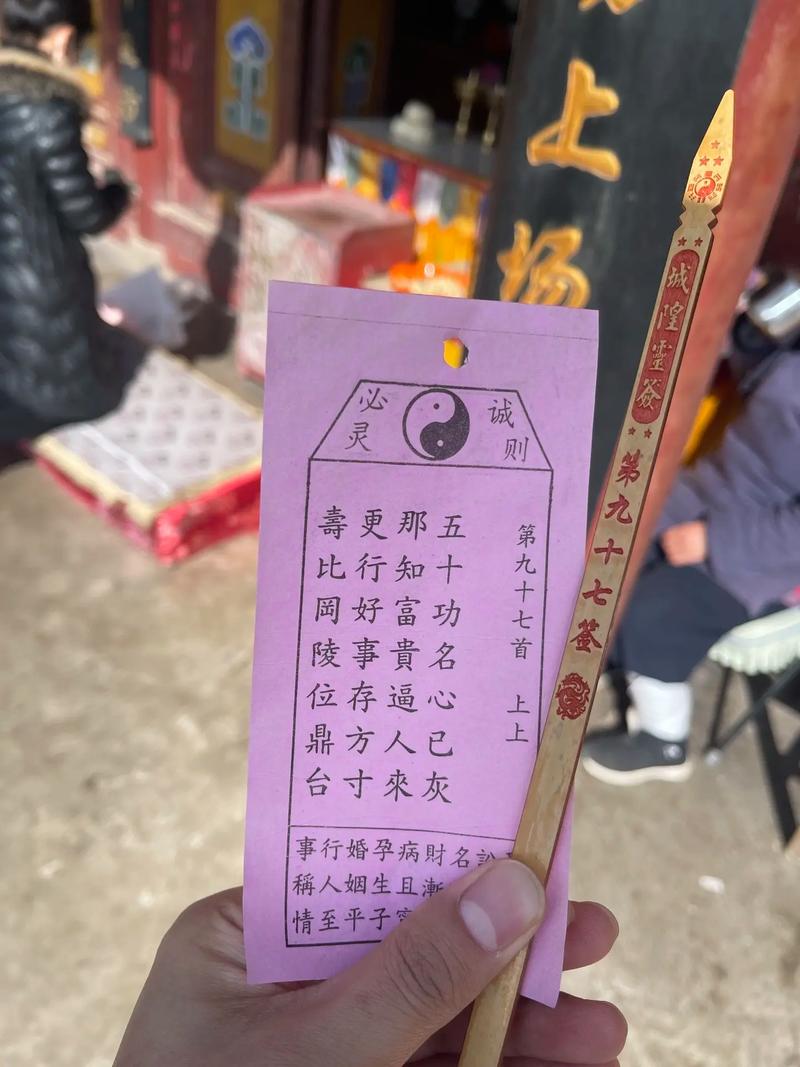 上场
诚则
必灵
第九十七首 上上
五十功名心已灰
那知富貴逼人來
更行好事存方寸
壽比岡陵位鼎台
訟
名
財漸
病且
孕生子
婚姻平
行人至
事稱情
城隍靈簽
第九十七签